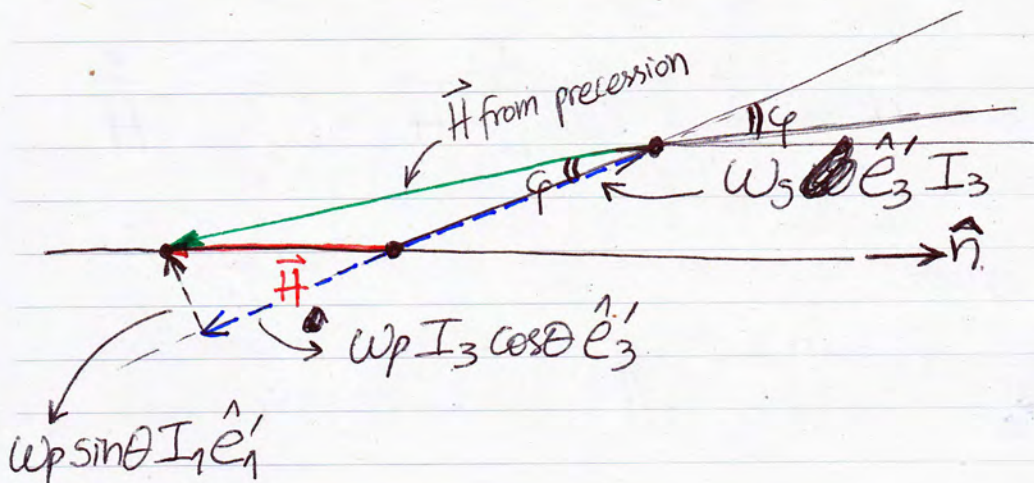 H⃗ from precession
φ
φ
ω_s ê₃′ I₃
n̂
H⃗
ω_p I₃ cosθ ê₃′
ω_p sinθ I₁ ê₁′